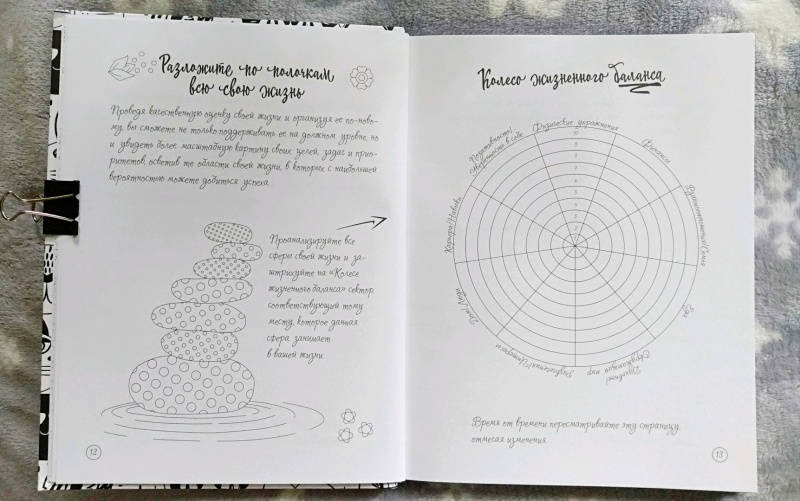 Разложите по полочкам
всю свою жизнь
Проведя качественную оценку своей жизни и организуя ее по-ново-
му, вы сможете не только поддерживать ее на должном уровне, но
и увидеть более масштабную картину своих целей, задач и прио-
ритетов, осветив те области своей жизни, в которых с наибольшей
вероятностью можете добиться успеха.
Проанализируйте все
сферы своей жизни и за-
штрихуйте на «Колесе
жизненного баланса» сектор,
соответствующий тому
месту, которое данная
сфера занимает
в вашей жизни
12
Колесо жизненного баланса
Позитивность/
уверенность в себе
Физические упражнения
Финансы
Взаимоотношения/Семья
Еда
Душевный/
Окружающий мир
Карьера/Навыки
Время от времени пересматривайте эту страницу,
отмечая изменения
13